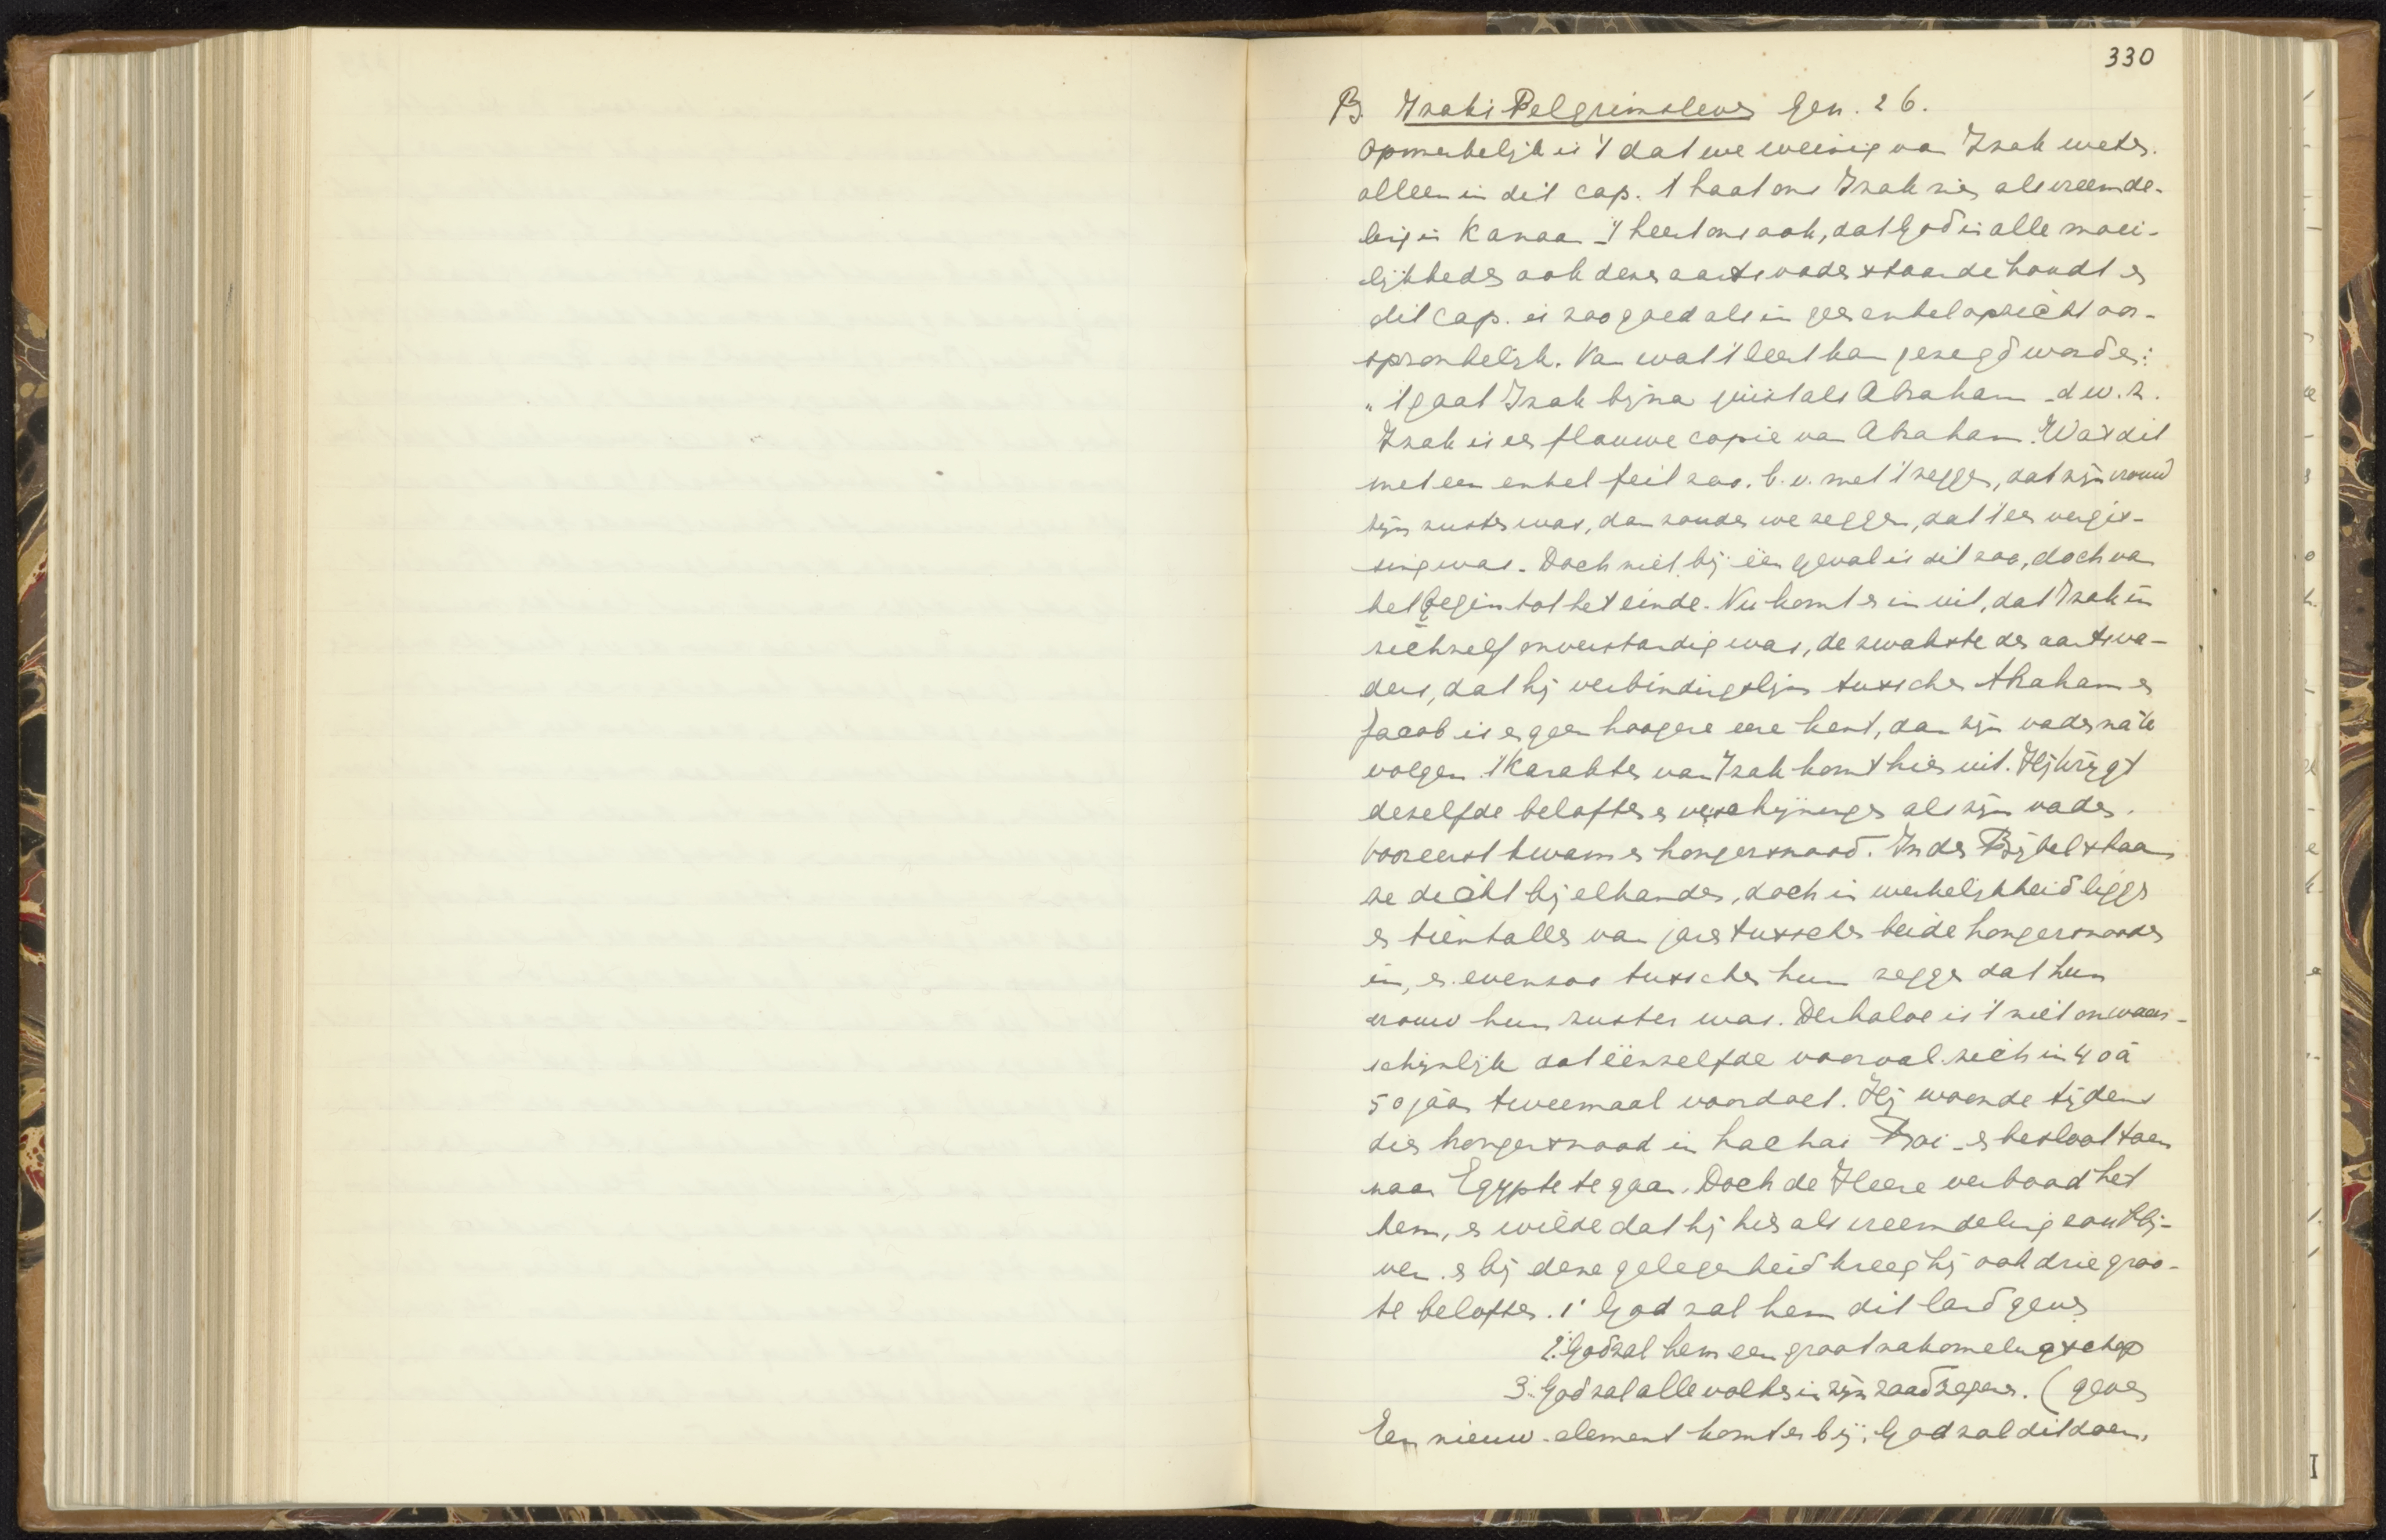 330
B. Izaks Pelgrimsleven Gen. 26.
Opmerkelijk is 't dat we weinig van Izak weten.
alleen in dit cap. 't haalt ons Izak zien als vreemde-
ling in Kanaan - 't leert ons ook, dat God in alle moei-
lijkheden ook deze aartsvader staande houdt en
dit cap. is zoo goed als in geen enkel opzicht oor-
spronkelijk. Van wat 't leert kan gezegd worden:
„'t gaat Izak bijna juist als Abraham - d.w.z.
Izak is een flauwe copie van Abraham. Was dit
met een enkel feit zoo. b.v. met 't zeggen, dat zijn vrouw
zijn zuster was, dan zouden we zeggen, dat 't een vergis-
sing was. Doch niet bij één geval is dit zoo, doch van
het begin tot het einde. Nu komt er in uit, dat Izak in
zichzelf onverstandig was, de zwakste der aartsva-
ders, dat hij verbindingslijn tusschen Abraham en
Jacob is en geen hoogere eere kent, dan zijn vader na te
volgen. 't Karakter van Izak komt hier uit. Hij krijgt
dezelfde beloften en verschijningen als zijn vader.
Vooreerst kwam er hongersnood. In den Bijbel staan
ze dicht bij elkander, doch in werkelijkheid liggen
er tientallen van jaren tusschen beide hongersnooden
in, en evenzoo tusschen hun zeggen dat hun
vrouw hun zuster was. Derhalve is 't niet onwaar-
schijnlijk dat éénzelfde voorval zich in 40 à
50 jaar tweemaal voordoet. Hij woonde tijdens
dien hongersnood in Lachai Roi - en besloot toen
naar Egypte te gaan. Doch de Heere verbood het
hem, en wilde dat hij hier als vreemdeling zou blij-
ven. en bij deze gelegenheid kreeg hij ook drie groo-
te beloften. 1. God zal hem dit land geven
2. God zal hem een groot nakomelingschap
3. God zal alle volken in zijn zaad zegenen. (geven
Een nieuw element komt er bij: God zal dit doen,